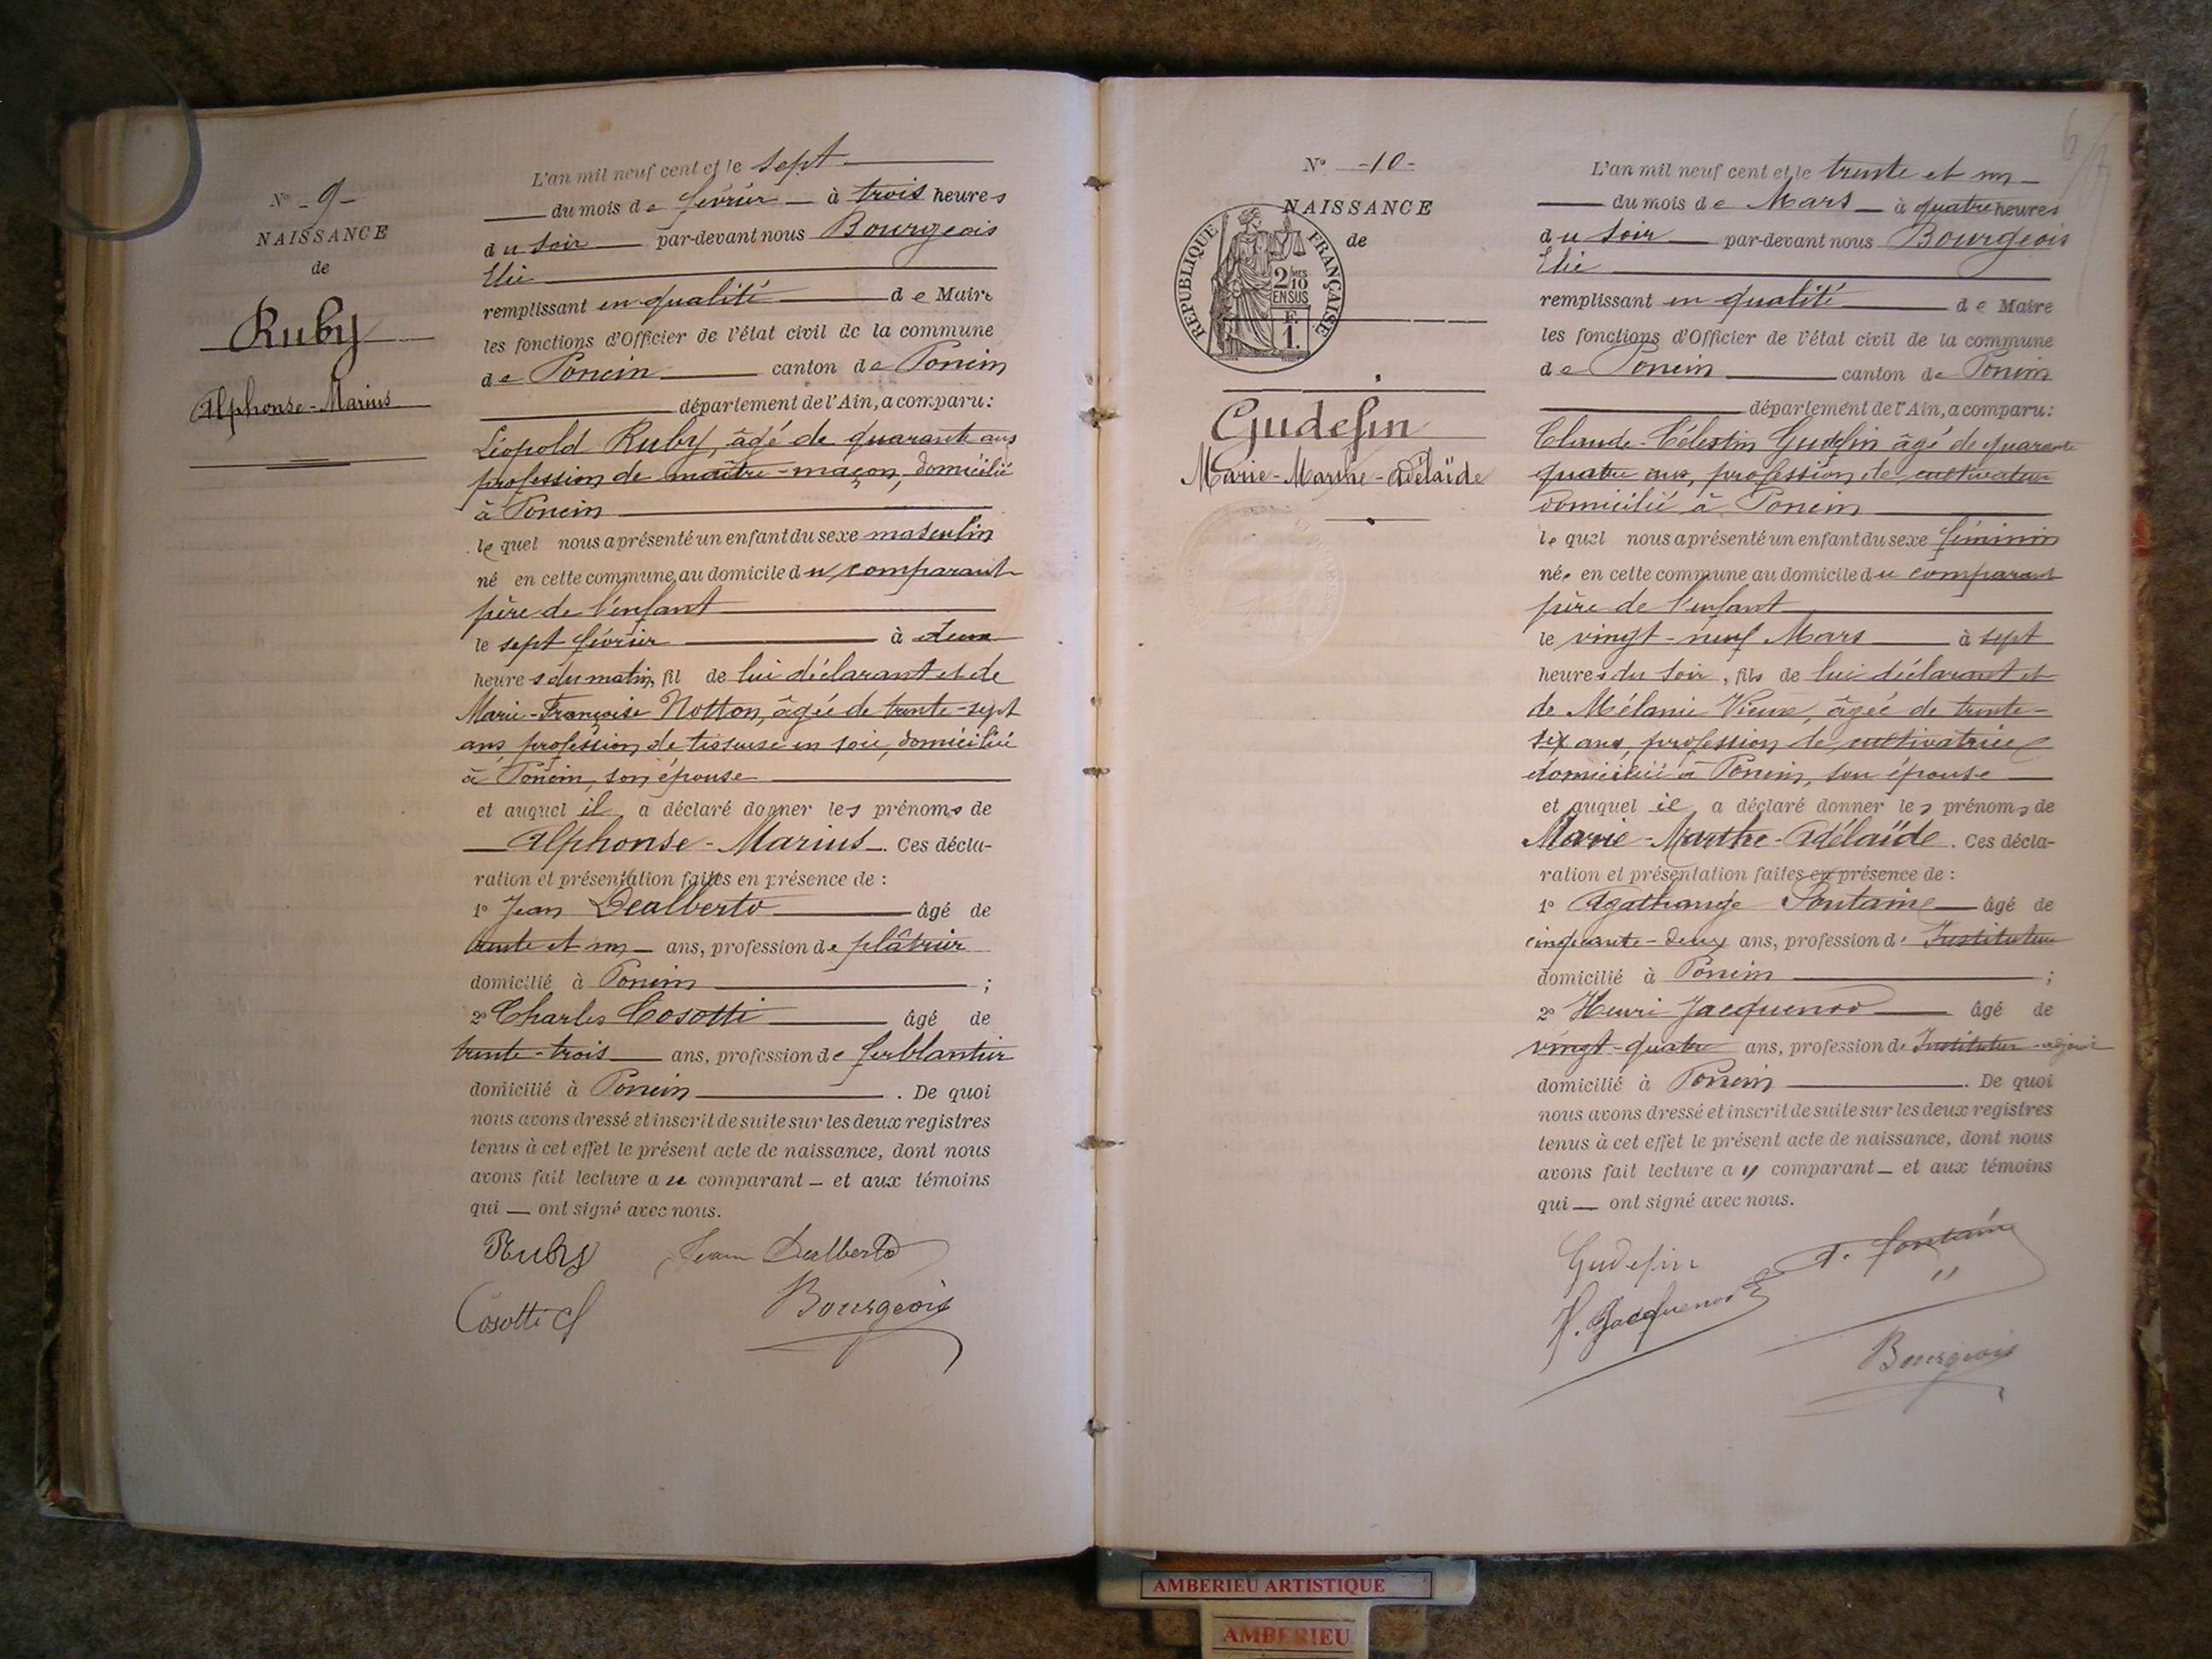 N° - 9 -
NAISSANCE
de
Ruby
Alphonse-Marius
L'an mil neuf cent et le sept
du mois de février à trois heures
du soir par-devant nous Bourgeois
Elie
remplissant en qualité de Maire
les fonctions d'Officier de l'état civil de la commune
de Poncin canton de Poncin
département de l'Ain, a comparu:
Léopold Ruby, âgé de quarante ans
profession de maître-maçon, domicilié
à Poncin
lequel nous a présenté un enfant du sexe masculin
né en cette commune au domicile du comparant
père de l'enfant
le sept février à deux
heures du matin, fil de lui déclarant et de
Marie-Françoise Notton, âgée de trente-sept
ans profession de tisseuse en soie, domiciliée
à Poncin, son épouse
et auquel il a déclaré donner les prénoms de
Alphonse-Marius. Ces décla-
ration et présentation faites en présence de :
1° Jean Dealberto âgé de
trente et un ans, profession de plâtrier
domicilié à Poncin ;
2° Charles Cosotti âgé de
trente-trois ans, profession de ferblantier
domicilié à Poncin . De quoi
nous avons dressé et inscrit de suite sur les deux registres
tenus à cet effet le présent acte de naissance, dont nous
avons fait lecture au comparant - et aux témoins
qui - ont signé avec nous.
Ruby Jean Dealberto
Cosotti Ch Bourgeois
N° -10-
NAISSANCE
de
REPUBLIQUE FRANÇAISE
2/10 MES
EN SUS
F.
1.
Gudefin
Marie-Marthe-Adélaïde
L'an mil neuf cent et le trente et un
du mois de Mars à quatre heures
du soir par-devant nous Bourgeois
Elie
remplissant en qualité de Maire
les fonctions d'Officier de l'état civil de la commune
de Poncin canton de Poncin
département de l'Ain, a comparu:
Claude-Célestin Gudefin âgé de quarante
quatre ans, profession de cultivateur
domicilié à Poncin
lequel nous a présenté un enfant du sexe féminin
née en cette commune au domicile du comparant
père de l'enfant
le vingt-neuf Mars à sept
heures du soir, fils de lui déclarant et
de Mélanie Vieux, âgée de trente-
six ans, profession de cultivatrice
domiciliée à Poncin, son épouse
et auquel il a déclaré donner les prénoms de
Marie-Marthe-Adélaïde. Ces décla-
ration et présentation faites en présence de :
1° Agathange Fontaine âgé de
cinquante-deux ans, profession d' Instituteur
domicilié à Poncin ;
2° Henri Jacquenod âgé de
vingt-quatre ans, profession d' Instituteur-adjoint
domicilié à Poncin . De quoi
nous avons dressé et inscrit de suite sur les deux registres
tenus à cet effet le présent acte de naissance, dont nous
avons fait lecture au comparant - et aux témoins
qui - ont signé avec nous.
Gudefin A. Fontaine
H. Jacquenod
Bourgeois
AMBERIEU ARTISTIQUE
AMBERIEU